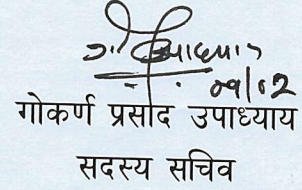 ०१/०२
गोकर्ण प्रसाद उपाध्याय
सदस्य सचिव